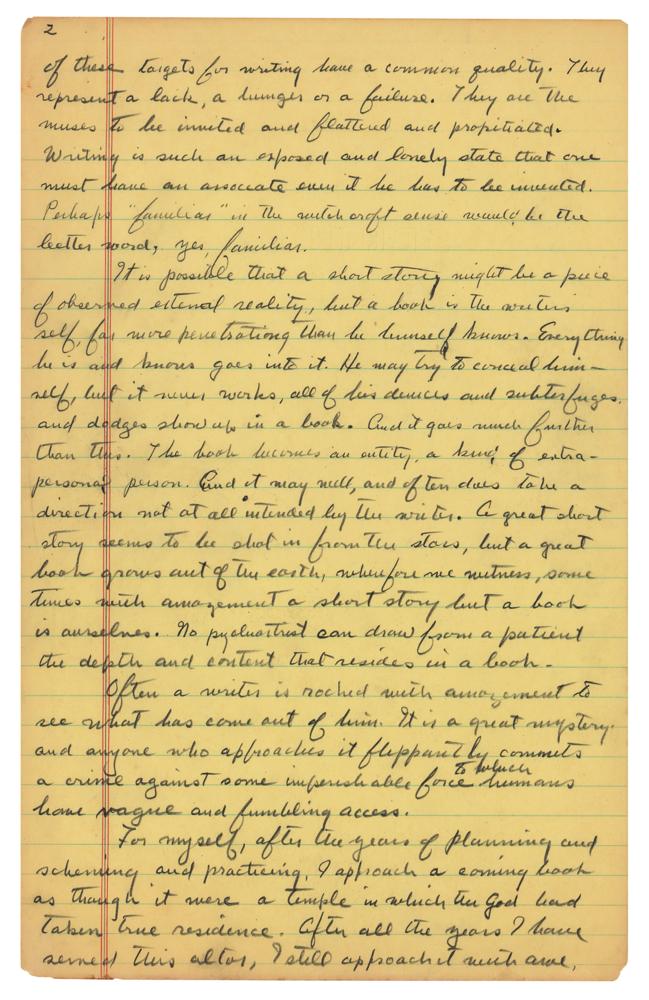 2
of these targets for writing have a common quality. They
represent a lack, a hunger or a failure. They are the
muses to be invited and flattered and propitiated.
Writing is such an exposed and lonely state that one
must have an associate even if he has to be invented.
Perhaps "familiar" in the witchcraft sense would be the
better word, yes, familiar.
It is possible that a short story might be a piece
of observed external reality, but a book is the writers
self, far more penetrationg than he himself knows. Everything
he is and knows goes into it. He may try to conceal him-
self, but it never works, all of his devices and subterfuges,
and dodges show up in a book. And it goes much further
than this. The book becomes an entity, a kind of extra-
personal person. And it may well, and often does take a
direction not at all intended by the writer. A great short
story seems to be shot in from the stars, but a great
book grows out of the earth, wherefore we witness, some
times with amazement a short story but a book
is ourselves. No psychiatrist can draw from a patient
the depth and content that resides in a book.
Often a writer is rocked with amazement to
see what has come out of him. It is a great mystery.
and anyone who approaches it flippantly commits
a crime against some imperishable force to which humans
have vague and fumbling access.
For myself, after the years of planning and
scheming and practicing, I approach a coming book
as though it were a temple in which the God had
taken true residence. After all the years I have
served this altar, I still approach it with awe,